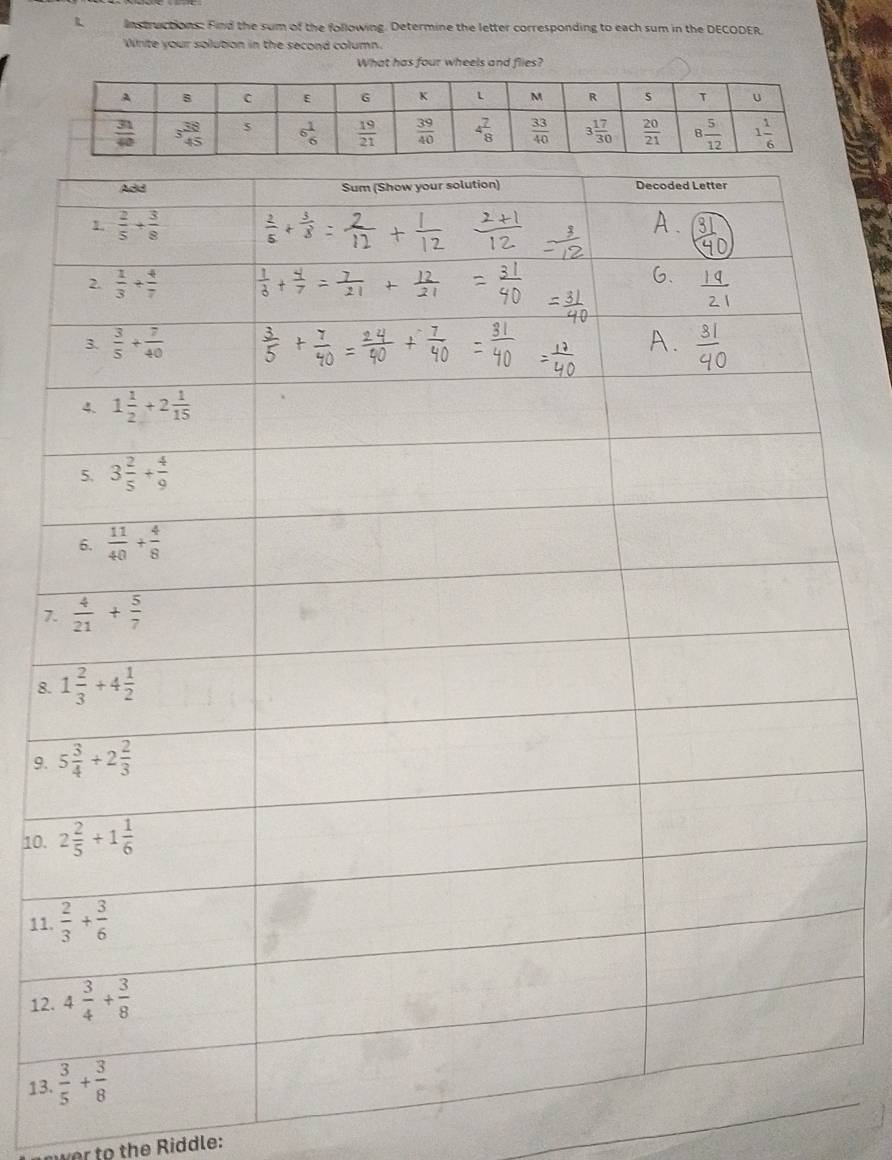 I. Instructions: Find the sum of the following. Determine the letter corresponding to each sum in the DECODER.
Write your solution in the second column.
What has four wheels and flies?
A B C E G K L M R S T U
31/40 3 38/45 5 6 1/6 19/21 39/40 4 7/8 33/40 3 17/30 20/21 8 5/12 1 1/6
Add Sum (Show your solution) Decoded Letter
1. 2/5 + 3/8 2/5 + 3/8 = 2/12 + 1/12 2+1/12 = 3/12 A. 31/40
2. 1/3 + 4/7 1/3 + 4/7 = 7/21 + 12/21 = 31/40 = 31/40 G. 19/21
3. 3/5 + 7/40 3/5 + 7/40 = 24/40 + 7/40 = 31/40 = 17/40 A. 31/40
4. 1 1/2 + 2 1/15
5. 3 2/5 + 4/9
6. 11/40 + 4/8
7. 4/21 + 5/7
8. 1 2/3 + 4 1/2
9. 5 3/4 + 2 2/3
10. 2 2/5 + 1 1/6
11. 2/3 + 3/6
12. 4 3/4 + 3/8
13. 3/5 + 3/8
to the Riddle: